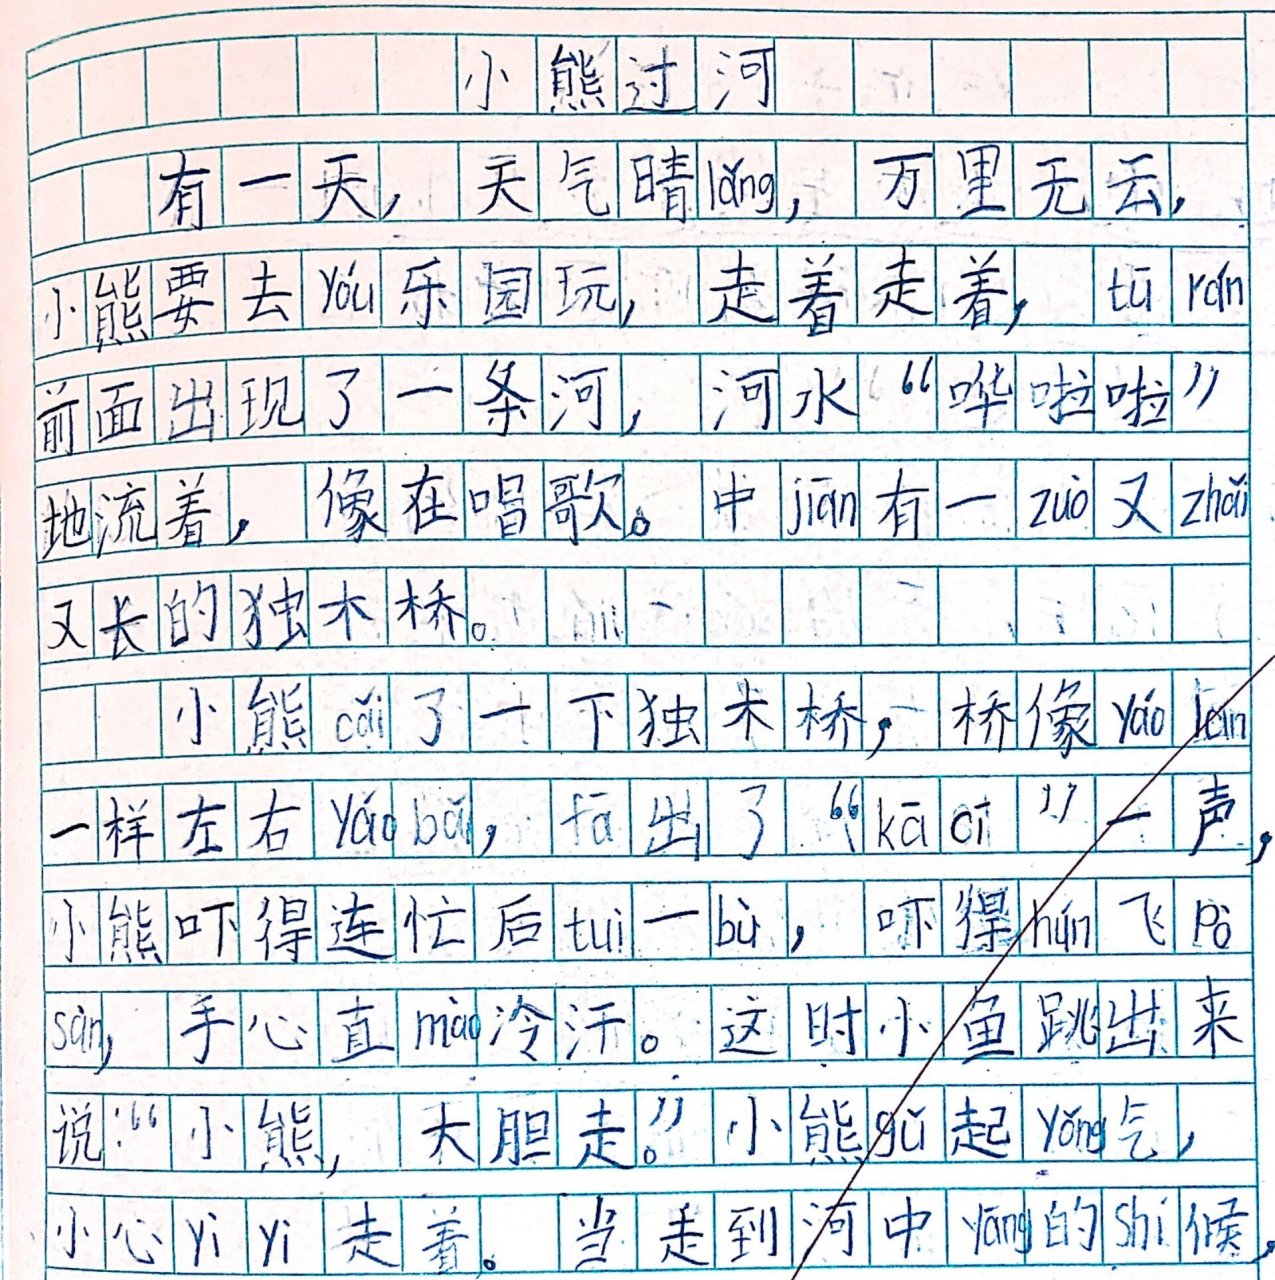 小熊过河
有一天，天气晴lǎng，万里无云，
小熊要去yóu乐园玩，走着走着，tū rán
前面出现了一条河，河水“哗啦啦”
地流着，像在唱歌。中jiān有一zuò又zhǎi
又长的独木桥。
小熊cǎi了一下独木桥，桥像yáo lán
一样左右yáo bǎi，fā出了“kā cī”一声，
小熊吓得连忙后tuì一bù，吓得hún飞pò
sàn，手心直mào冷汗。这时小鱼跳出来
说：“小熊，大胆走。”小熊gǔ起yǒng气，
小心yì yì走着。当走到河中yāng的shí候，